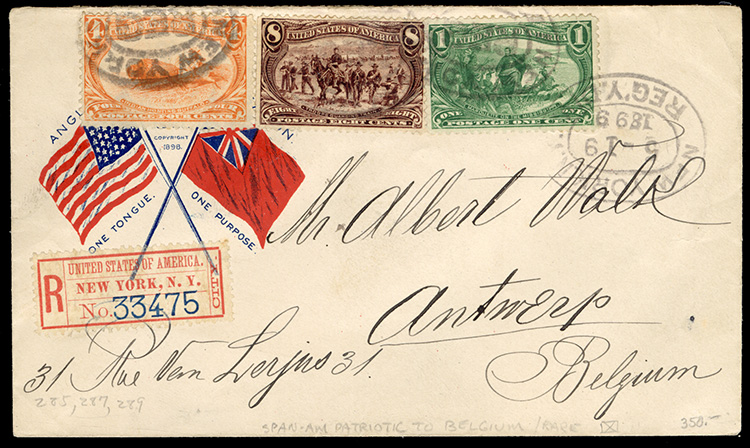 4 4
UNITED STATES OF AMERICA
POSTAGE FOUR CENTS
8 8
UNITED STATES OF AMERICA
POSTAGE EIGHT CENTS
1 1
UNITED STATES OF AMERICA
POSTAGE ONE CENT
NEW YORK
REG'Y.
1899
ANGL
N.
COPYRIGHT
1898.
ONE TONGUE.
ONE PURPOSE
Mr. Albert
Antwerp
Belgium
R
UNITED STATES OF AMERICA.
NEW YORK, N. Y.
No. 33475
31 Rue Van Lerjus 31.
285, 287, 289
SPAN-AM PATRIOTIC TO BELGIUM / RARE
350.-